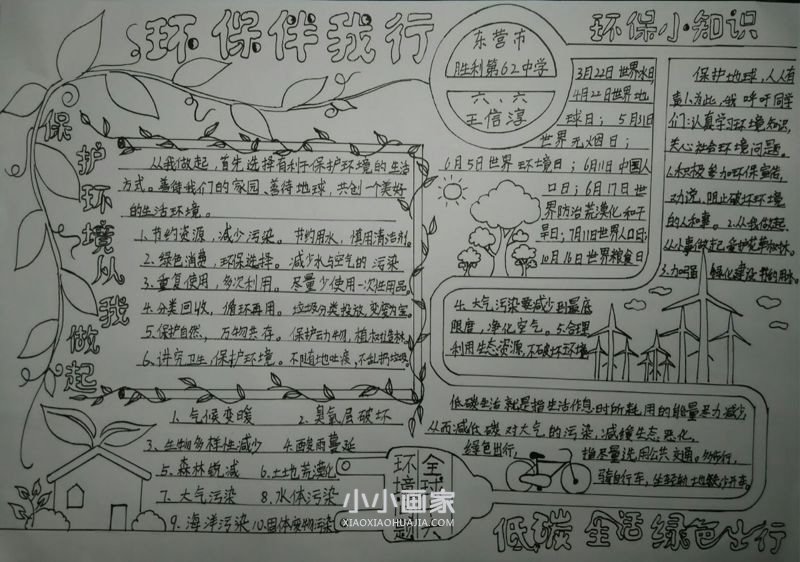 环保伴我行
保护环境从我做起
东营市
胜利第62中学
六、六
王信淳
环保小知识
从我做起,首先选择有利于保护环境的生活
方式。善待我们的家园、善待地球,共创一个美好
的生活环境。
1.节约资源,减少污染。节约用水,慎用清洁剂。
2.绿色消费,环保选择。减少水与空气的污染
3.重复使用,多次利用。尽量少使用一次性用品。
4.分类回收,循环再用。垃圾分类投放,变废为宝。
5.保护自然,万物共存。保护动物,植树造林。
6.讲究卫生,保护环境。不随地吐痰,不乱扔垃圾。
3月22日世界水日
4月22日世界地
球日;5月31日
世界无烟日;
6月5日世界环境日;6月11日中国人
口日;6月17日世
界防治荒漠化和干
旱日;7月11日世界人口日;
10月16日世界粮食日
保护地球,人人有
责!为此,我呼吁同学
们:认真学习环境知识,
关心社会环境问题。
1.积极参加环保宣传,
劝说,阻止破坏环境
的人和事。2.从我做起,
从小事做起,爱护花草和林。
3.绿化建设,节约用水。
4.大气污染要减少到最底
限度,净化空气。5.合理
利用生态资源,不破坏环境
1、气候变暖 2、臭氧层破坏
3、生物多样性减少 4、酸雨蔓延
5、森林锐减 6、土地荒漠化
7、大气污染 8、水体污染
9、海洋污染 10.固体废物污染
全球
环境
题
低碳生活就是指生活作息时所耗用的能量尽力减少,
从而减低碳对大气的污染,减缓生态恶化,
绿色出行,
指尽量选用公共交通。多步行,
骑自行车,坐轻轨地铁少开车。
低碳生活绿色出行
小小画家
XIAOXIAOHUAJIA.COM